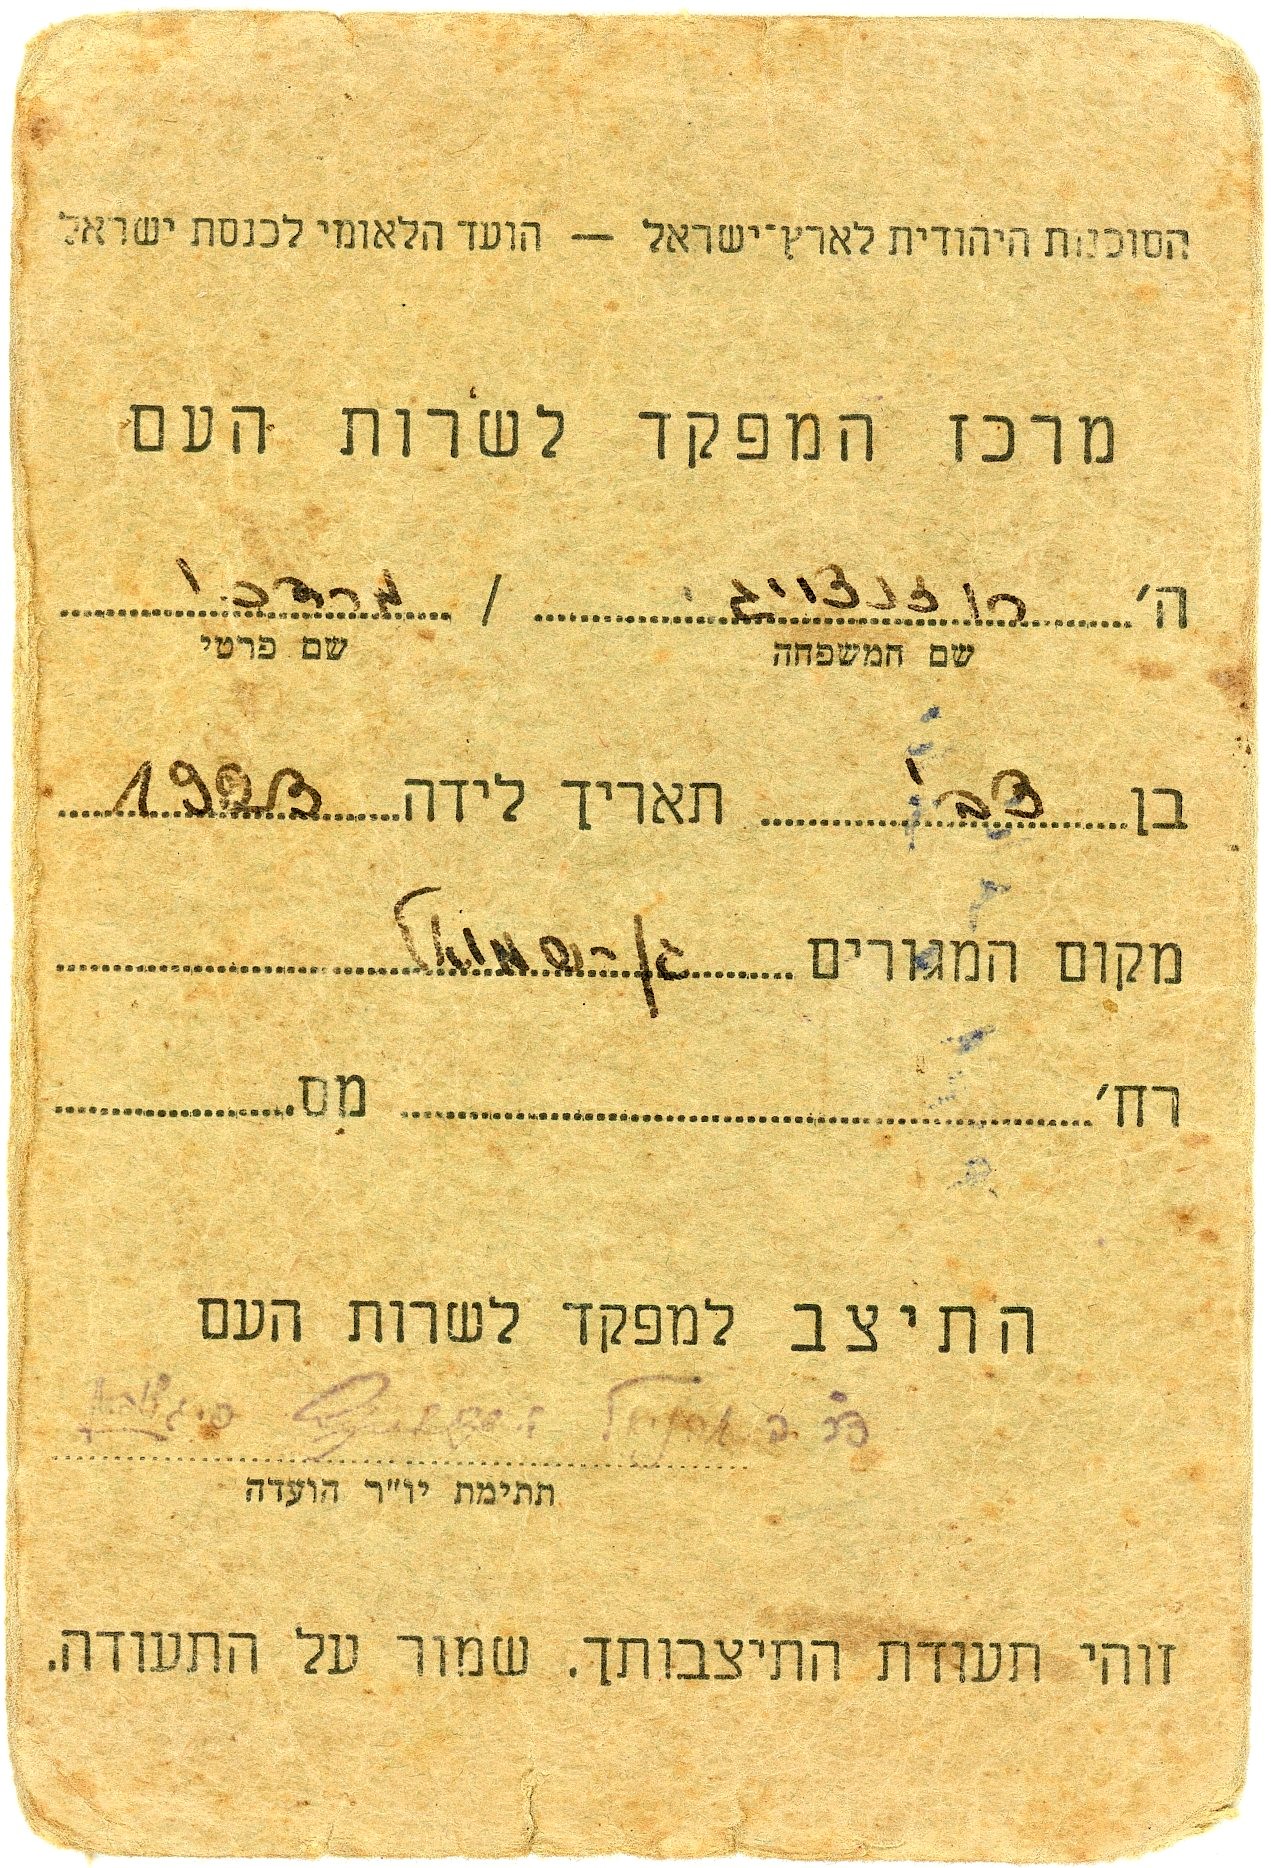 הסוכנות היהודית לארץ־ישראל — הועד הלאומי לכנסת ישראל
מרכז המפקד לשרות העם
ה' רוזנצויג / מרדכי
שם המשפחה שם פרטי
בן צבי תאריך לידה 1923
מקום המגורים גן-שמואל
רח' מס.
התיצב למפקד לשרות העם
חתימת יו"ר הועדה
זוהי תעודת התיצבותך. שמור על התעודה.